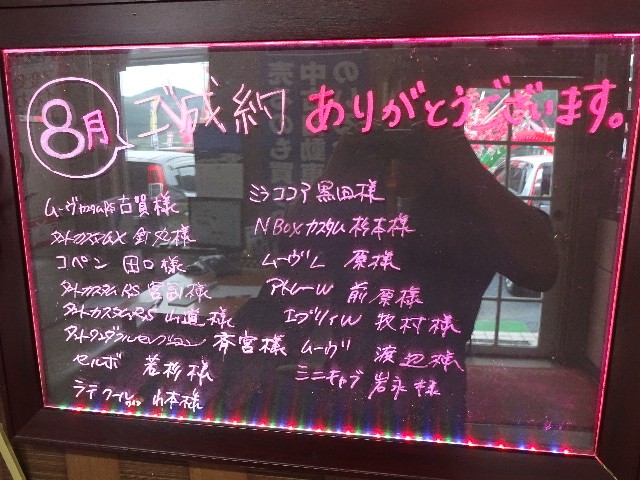 8月
ご成約 ありがとうございます。
ムーヴカスタムRS 古賀様
タントカスタムX 釘丸様
コペン 田口様
タントカスタムRS 宮副様
タントカスタムRS 山道様
タントウェルカムセレクション 斉宮様
セルボ 若杉様
ラテクール 山本様
ミラココア 黒田様
N Box カスタム 松本様
ムーヴL 原様
アトレーW 前原様
エブリィW 牧村様
ムーヴ 渡辺様
ミニキャブ 岩永様